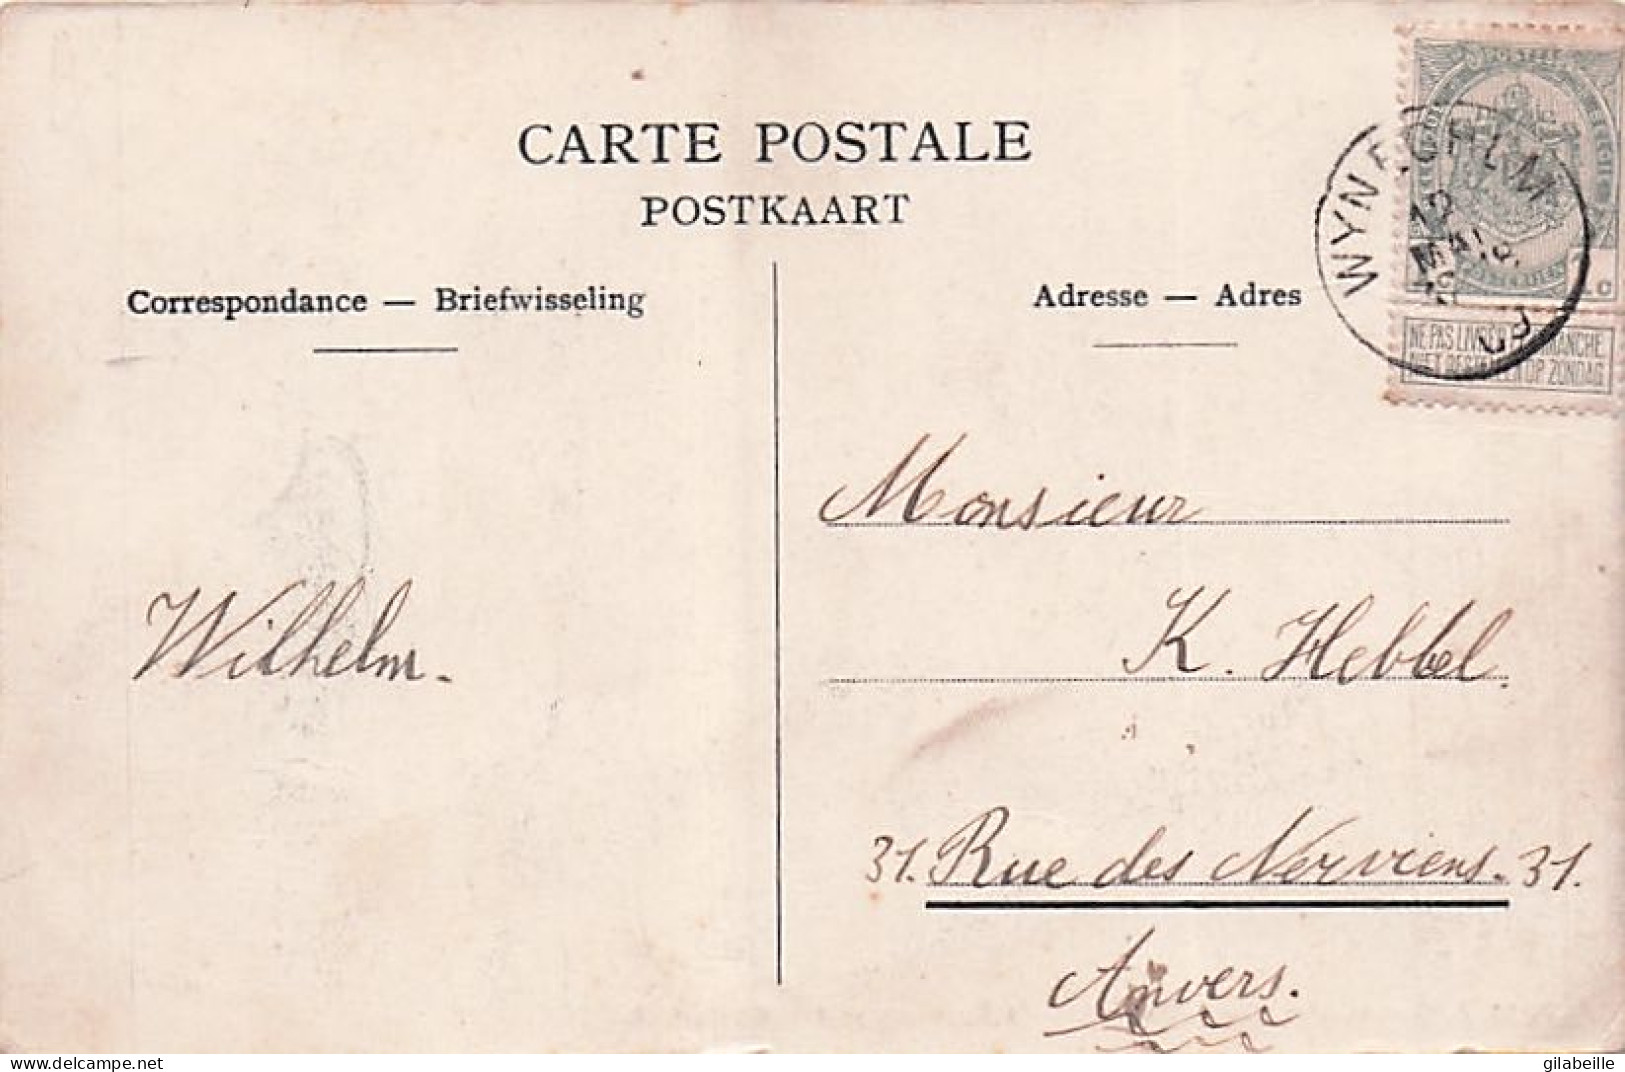 CARTE POSTALE
POSTKAART
Correspondance — Briefwisseling
Adresse — Adres
MAI
NE PAS LIVRER LE DIMANCHE
NIET BESTELLEN OP ZONDAG
Monsieur
K. Hebbel.
Wilhelm.
31. Rue des Nerviens. 31.
Anvers.
gilabeille